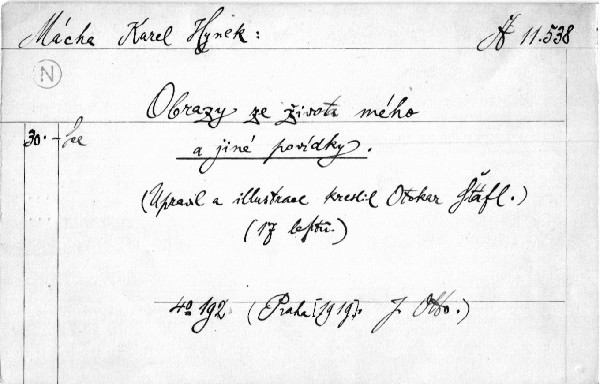 Mácha Karel Hynek: A 11.538
N
Obrazy ze života mého
30.-
a jiné povídky.
(Upravil a illustrace kreslil Otokar Štáfl.)
(17 leptů.)
4º 192 (Praha [1919]. J. Otto.)